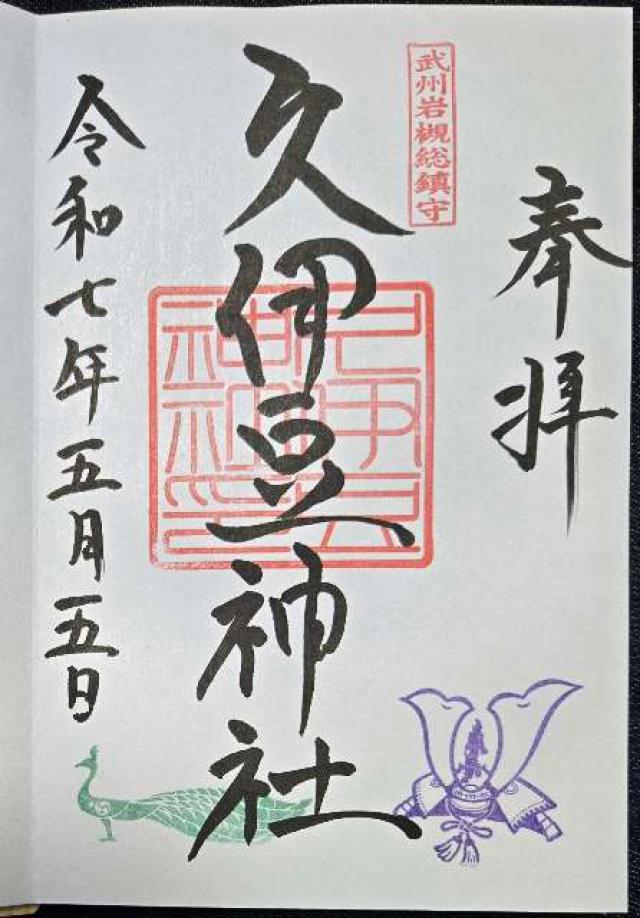 奉拝
武州岩槻総鎮守
久伊豆神社
令和七年五月五日